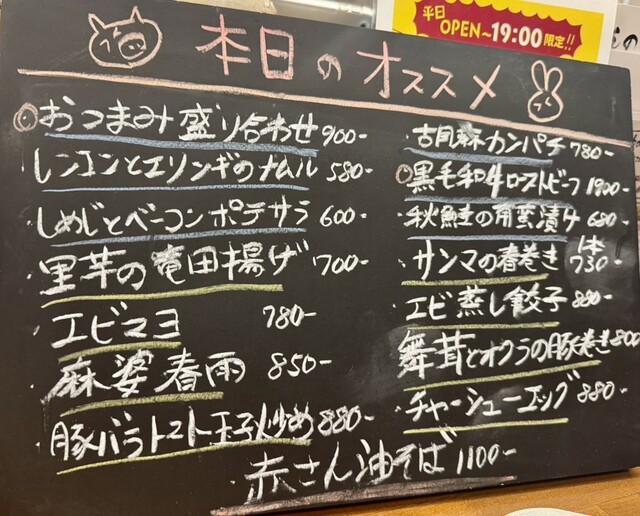 平日
OPEN~19:00限定!!
本日のオススメ
おつまみ盛り合わせ 900-
レンコンとエリンギのナムル 580-
しめじとベーコンポテサラ 600-
・里芋の竜田揚げ 700-
・エビマヨ 780-
・麻婆春雨 850-
・豚バラトマト玉子炒め 880-
胡麻カンパチ 780-
黒毛和牛ローストビーフ
・秋鮭の南蛮漬け 680-
・サンマの春巻き 1本730-
・エビ蒸し餃子
・舞茸とオクラの豚巻き 800
・チャーシューエッグ 880-
・赤さん油そば 1100-